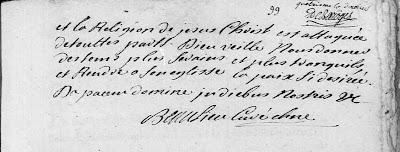 99
et la Religion de jesus Christ est attaquée
de touttes parts. Dieu veille nous donner
des tems plus serains et plus tranquils
et Rendre a son eglisse la paix si desirée.
Da pacem domine in diebus nostris &c
Curé